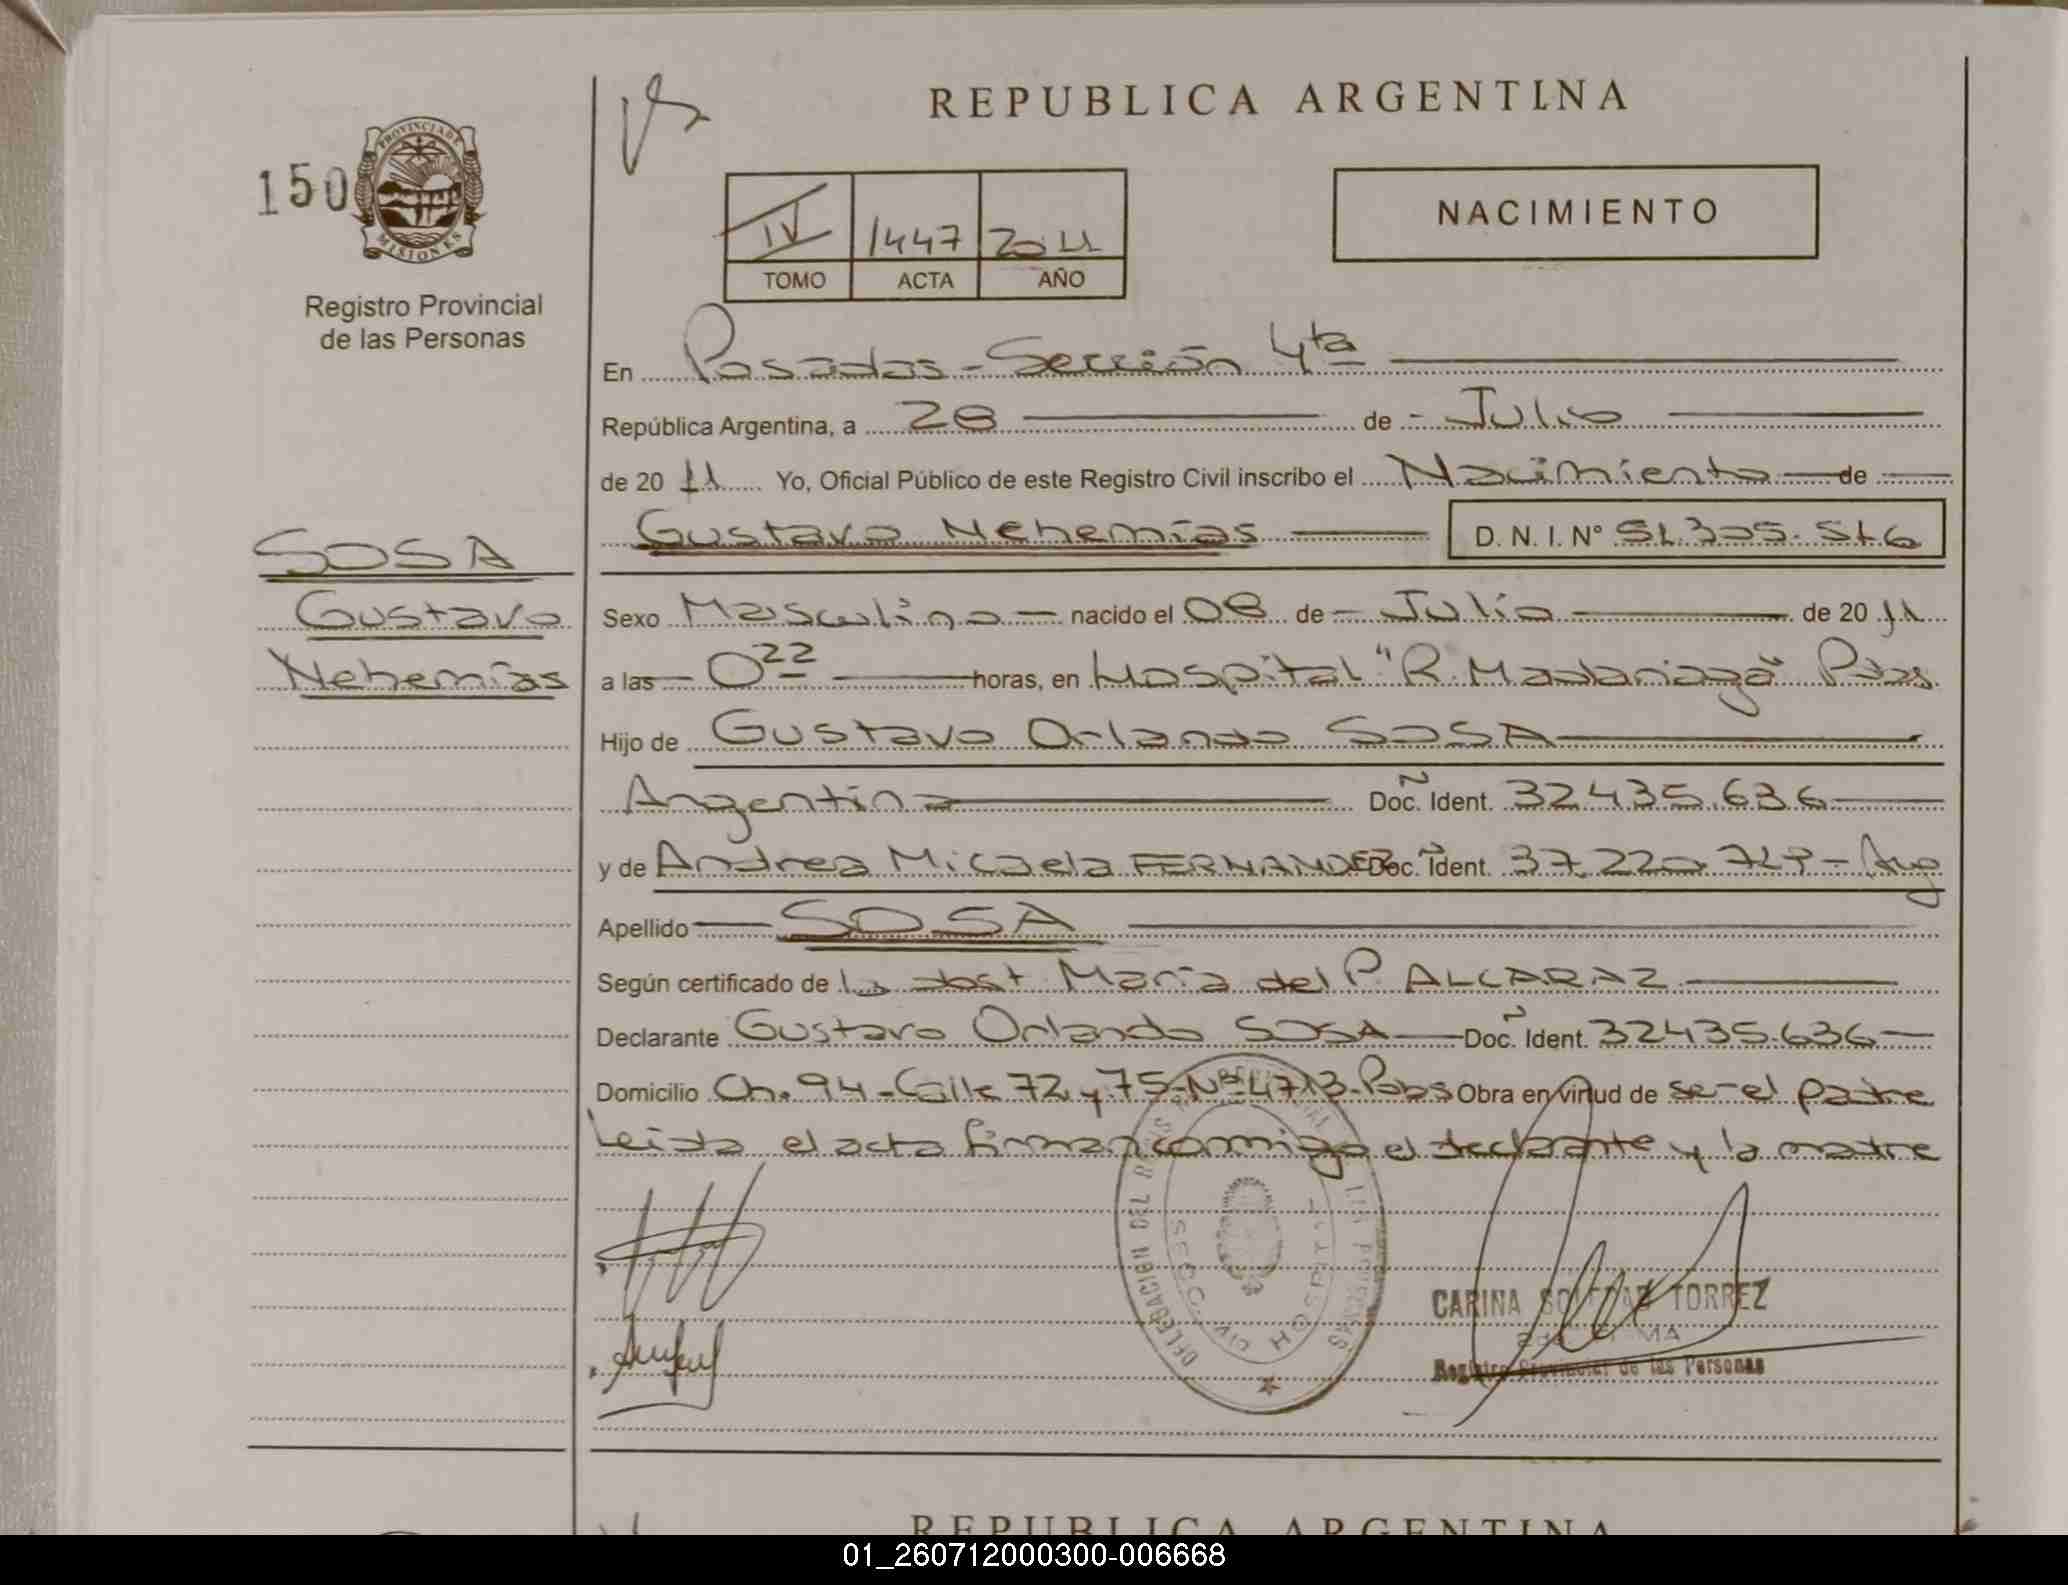 REPUBLICA ARGENTINA
150
PROVINCIA DE
MISIONES
Registro Provincial
de las Personas
IV 1447 2011
TOMO ACTA AÑO
NACIMIENTO
En Posadas - Sección 4ta
República Argentina, a 28 de Julio
de 2011 Yo, Oficial Público de este Registro Civil inscribo el Nacimiento de
Gustavo Nehemías D. N. I. N° 51.305.516
SOSA
Gustavo
Nehemías
Sexo Masculino nacido el 08 de Julio de 2011
a las 0 22 horas, en Hospital "R. Madariaga" Pdas.
Hijo de Gustavo Orlando SOSA
Argentina Doc. Ident. 32435.636
y de Andrea Micaela FERNANDEZ Doc. Ident. 37.220. - Arg
Apellido SOSA
Según certificado de la obst María del P. ALCARAZ
Declarante Gustavo Orlando SOSA Doc. Ident. 32435.636
Domicilio Ch. 94 - Calle 72 y 75 - Nº 4713 - Pdas Obra en virtud de ser el padre
Leida el acta firman conmigo el declarante y la madre
DELEGACION DEL
SECC.
HOSPITAL
CARINA SOLEDAD TORREZ
Registro Provincial de las Personas
REPUBLICA ARGENTINA
01_260712000300-006668